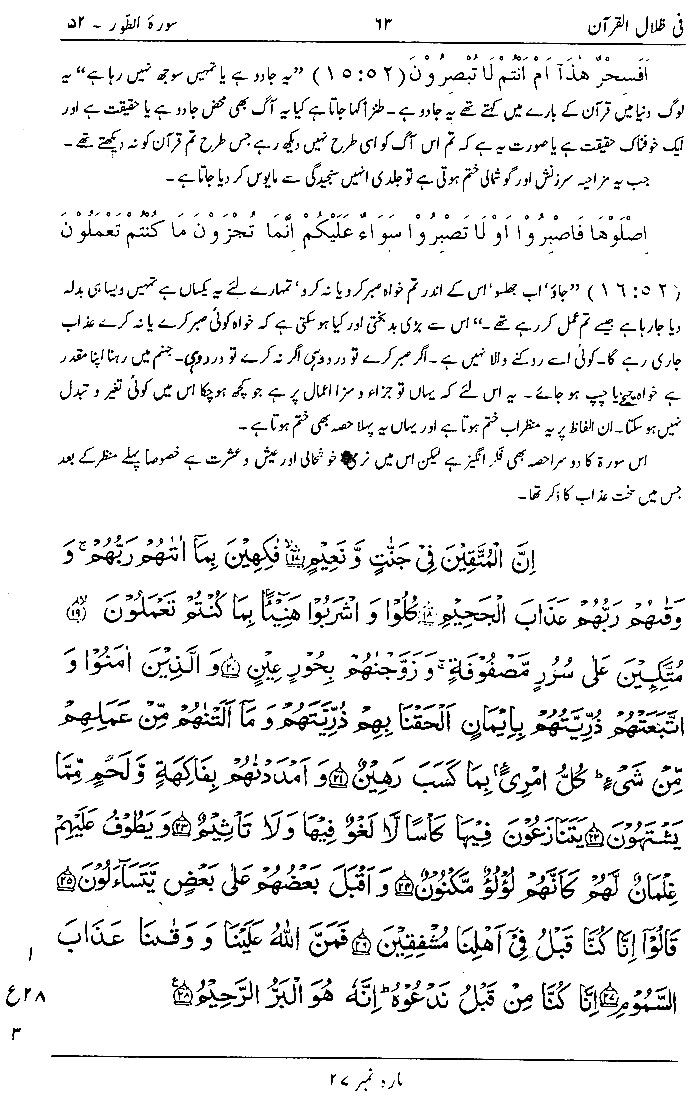 فی ظلال القرآن ۶۳ سورۃ الطور - ۵۲
اَفَسِحْرٌ هٰذَآ اَمْ اَنْتُمْ لَا تُبْصِرُوْنَ (۱۵:۵۲) ”یہ جادو ہے یا تمہیں سوجھ نہیں رہا ہے“ یہ
لوگ دنیا میں قرآن کے بارے میں کہتے تھے یہ جادو ہے۔ طنزاً کہا جاتا ہے کیا یہ آگ بھی محض جادو ہے یا حقیقت ہے اور
ایک خوفناک حقیقت ہے یا صورت یہ ہے کہ تم اس آگ کو اسی طرح نہیں دیکھ رہے جس طرح تم قرآن کو نہ دیکھتے تھے۔
جب یہ مزاحیہ سرزنش اور گوشمالی ختم ہوتی ہے تو جلدی انہیں سنجیدگی سے مایوس کر دیا جاتا ہے۔
اِصْلَوْهَا فَاصْبِرُوْٓا اَوْ لَا تَصْبِرُوْا سَوَآءٌ عَلَیْکُمْ اِنَّمَا تُجْزَوْنَ مَا کُنْتُمْ تَعْمَلُوْنَ
(۱۶:۵۲) ”جاؤ‘ اب جھلسو‘ اس کے اندر تم خواہ صبر کرو یا نہ کرو‘ تمہارے لئے یہ یکساں ہے تمہیں ویسا ہی بدلہ
دیا جا رہا ہے جیسے تم عمل کر رہے تھے۔“ اس سے بڑی بدبختی اور کیا ہو سکتی ہے کہ خواہ کوئی صبر کرے یا نہ کرے عذاب
جاری رہے گا۔ کوئی اسے روکنے والا نہیں ہے۔ اگر صبر کرے تو درد وہی اگر نہ کرے تو درد وہی۔ جہنم میں رہنا اپنا مقدر
ہے خواہ چیخے یا چپ ہو جائے۔ یہ اس لئے کہ یہاں تو جزاء و سزا اعمال پر ہے جو کچھ ہو چکا اس میں کوئی تغیر و تبدل
نہیں ہو سکتا۔ ان الفاظ پر یہ منظر اب ختم ہوتا ہے اور یہاں یہ پہلا حصہ بھی ختم ہوتا ہے۔
اس سورۃ کا دوسرا حصہ بھی فکر انگیز ہے لیکن اس میں نری خوشحالی اور عیش و عشرت ہے خصوصاً پہلے منظر کے بعد
جس میں سخت عذاب کا ذکر تھا۔
اِنَّ الْمُتَّقِیْنَ فِیْ جَنّٰتٍ وَّ نَعِیْمٍ ۱۷ فٰکِهِیْنَ بِمَآ اٰتٰىهُمْ رَبُّهُمْ ۚ وَ
وَقٰىهُمْ رَبُّهُمْ عَذَابَ الْجَحِیْمِ ۱۸ کُلُوْا وَ اشْرَبُوْا هَنِیْٓـًٔۢا بِمَا کُنْتُمْ تَعْمَلُوْنَ ۱۹
مُتَّکِـِٕیْنَ عَلٰی سُرُرٍ مَّصْفُوْفَةٍ ۚ وَ زَوَّجْنٰهُمْ بِحُوْرٍ عِیْنٍ ۲۰ وَ الَّذِیْنَ اٰمَنُوْا وَ
اتَّبَعَتْهُمْ ذُرِّیَّتُهُمْ بِاِیْمَانٍ اَلْحَقْنَا بِهِمْ ذُرِّیَّتَهُمْ وَ مَآ اَلَتْنٰهُمْ مِّنْ عَمَلِهِمْ
مِّنْ شَیْءٍ ؕ کُلُّ امْرِیٍٔۢ بِمَا کَسَبَ رَهِیْنٌ ۲۱ وَ اَمْدَدْنٰهُمْ بِفَاکِهَةٍ وَّ لَحْمٍ مِّمَّا
یَشْتَهُوْنَ ۲۲ یَتَنَازَعُوْنَ فِیْهَا کَاْسًا لَّا لَغْوٌ فِیْهَا وَ لَا تَاْثِیْمٌ ۲۳ وَ یَطُوْفُ عَلَیْهِمْ
غِلْمَانٌ لَّهُمْ کَاَنَّهُمْ لُؤْلُؤٌ مَّکْنُوْنٌ ۲۴ وَ اَقْبَلَ بَعْضُهُمْ عَلٰی بَعْضٍ یَّتَسَآءَلُوْنَ ۲۵
قَالُوْٓا اِنَّا کُنَّا قَبْلُ فِیْٓ اَهْلِنَا مُشْفِقِیْنَ ۲۶ فَمَنَّ اللّٰهُ عَلَیْنَا وَ وَقٰىنَا عَذَابَ
السَّمُوْمِ ۲۷ اِنَّا کُنَّا مِنْ قَبْلُ نَدْعُوْهُ ؕ اِنَّهٗ هُوَ الْبَرُّ الرَّحِیْمُ ۲۸
۱
ع۲۸
۳
پارہ نمبر ۲۷